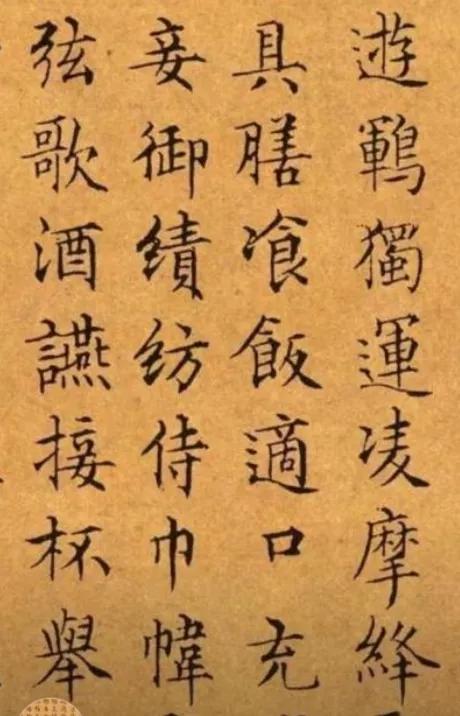 遊鵾獨運凌摩絳
具膳飡飯適口充
妾御績紡侍巾幃
弦歌酒讌接杯舉